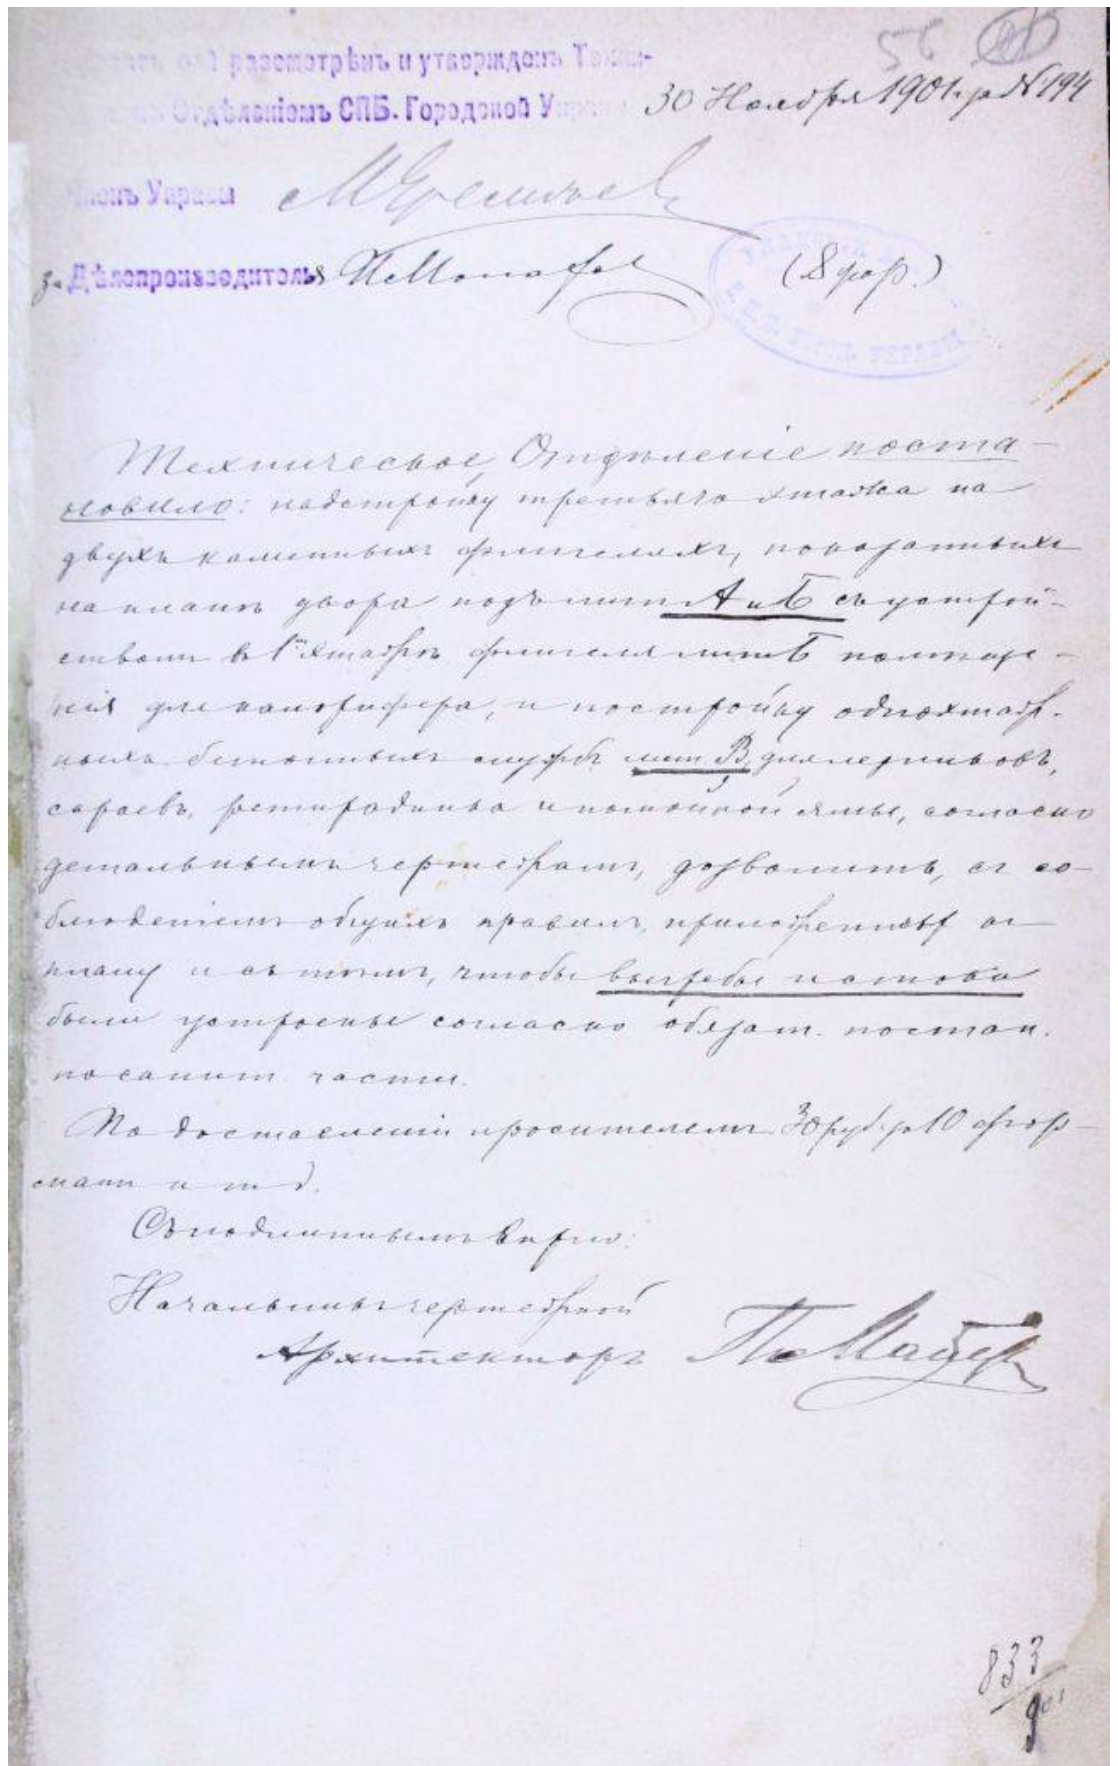 56
разсмотрѣнъ и утвержденъ Техни-
Отдѣленіемъ СПБ. Городской Управы 30 Ноября 1901 г. за № 194
Членъ Управы
За Дѣлопроизводителя (8 фор.)
Техническое Отдѣленіе поста-
новило: надстройку третьяго этажа на
двухъ каменныхъ флигеляхъ, показанныхъ
на планѣ двора подъ лит А и Б съ устрой-
ствомъ въ 1мъ этажѣ флигеля лит Б помѣще-
нія для калорифера, и постройку одноэтаж-
ныхъ бетонныхъ службъ лит В, для ледниковъ,
сараевъ, ретирадника и помойной ямы, согласно
детальнымъ чертежамъ, дозволить, съ со-
блюденіемъ общихъ правилъ, приложенныхъ къ
плану и съ тѣмъ, чтобы выгребы и стоки
были устроены согласно обязат. постан.
по санит части.
По доставленіи просителемъ 30 руб. за 10 фор-
мати и т д.
Съ подлиннымъ вѣрно:
Начальникъ чертежной
Архитекторъ
833
901